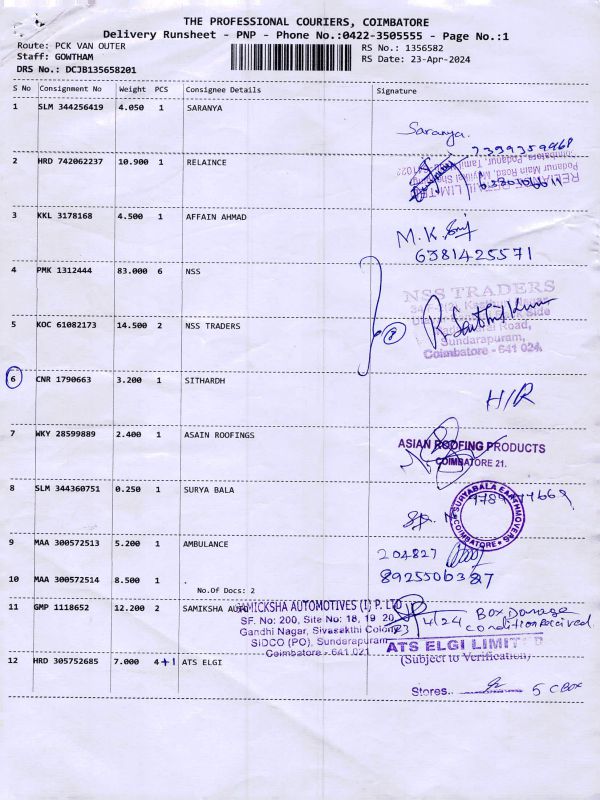 THE PROFESSIONAL COURIERS, COIMBATORE
Delivery Runsheet - PNP - Phone No.:0422-3505555 - Page No.:1
Route: PCK VAN OUTER
Staff: GOWTHAM
DRS No.: DCJB135658201
RS No.: 1356582
RS Date: 23-Apr-2024
S No Consignment No Weight PCS Consignee Details Signature
1 SLM 344256419 4.050 1 SARANYA
Saranya.
2 HRD 742062237 10.900 1 RELAINCE
3 KKL 3178168 4.500 1 AFFAIN AHMAD
M.K.
6381425571
4 PMK 1312444 83.000 6 NSS
NSS TRADERS
5 KOC 61082173 14.500 2 NSS TRADERS
8
Road,
Sundarapuram,
Coimbatore - 641 024.
6 CNR 1790663 3.200 1 SITHARDH
H/R
7 WKY 28599889 2.400 1 ASAIN ROOFINGS
ASIAN ROOFING PRODUCTS
COIMBATORE 21.
8 SLM 344360751 0.250 1 SURYA BALA
SURYABALA EARTHMOVERS
COIMBATORE
9 MAA 300572513 5.200 1 AMBULANCE
204827
10 MAA 300572514 8.500 1
8925506387
No.Of Docs: 2
11 GMP 1118652 12.200 2 SAMIKSHA AUTO
SAMICKSHA AUTOMOTIVES (I) P. LTD
SF. No: 200, Site No: 18, 19 20
Gandhi Nagar, Sivasakthi Colony
SIDCO (PO), Sundarapuram
Coimbatore - 641 021
23/4/24 Box Damage
condition Received.
12 HRD 305752685 7.000 4+1 ATS ELGI
ATS ELGI LIMITED
(Subject to Verification)
Stores.. 5 C Box